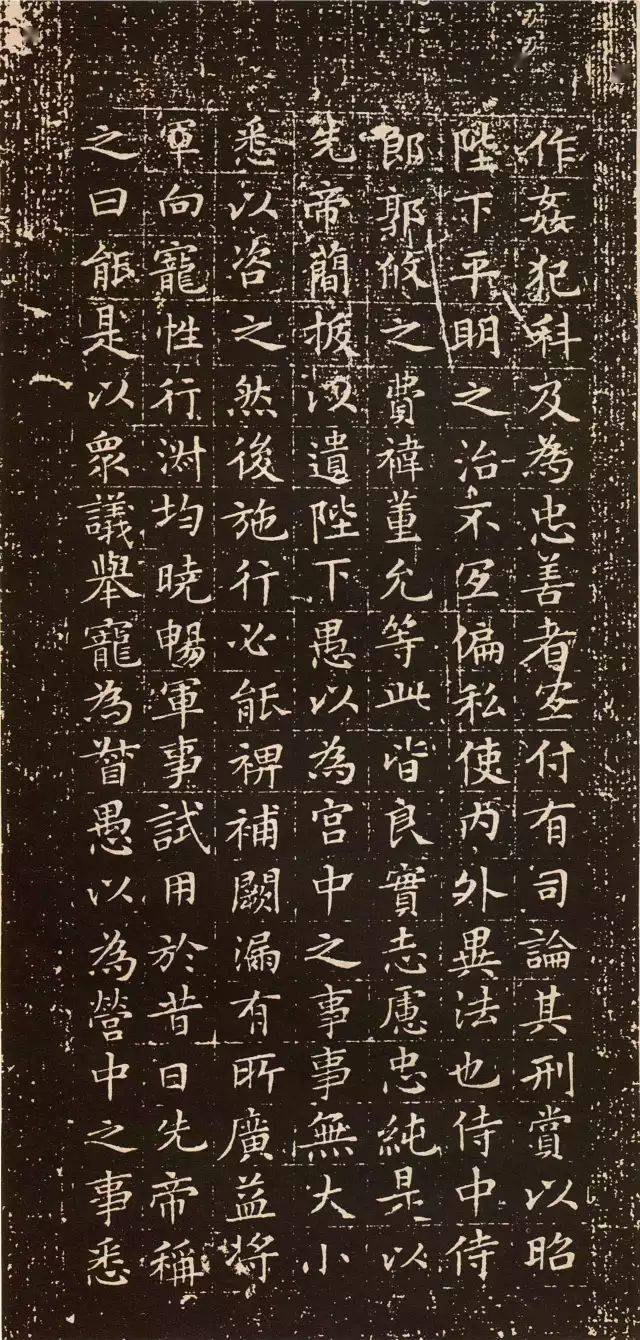 作姦犯科及為忠善者宜付有司論其刑賞以昭
陛下平明之治不宜偏私使內外異法也侍中侍
郎郭攸之費禕董允等此皆良實志慮忠純是以
先帝簡拔以遺陛下愚以為宮中之事事無大小
悉以咨之然後施行必能裨補闕漏有所廣益將
軍向寵性行淑均曉暢軍事試用於昔日先帝稱
之曰能是以眾議舉寵為督愚以為營中之事悉